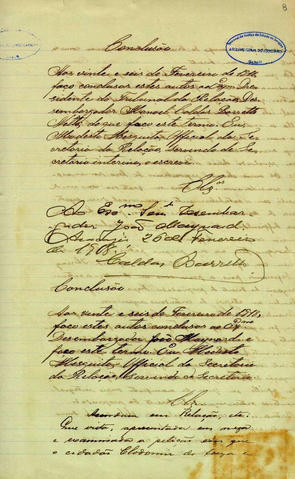 8
Conclusão
Aos vinte e seis de Fevereiro de
faço conclusos estes autos ao Exmo Pre-
sidente do Tribunal da Relação, Des-
embargador Manoel Caldas Barretto
Netto, do que faço este termo. Eu
Modesto Mesquita Official da Se-
cretaria da Relação, servindo de Se-
cretario interino, o escrevi
Clsos
Ao Exmo Senr Desembar-
gador João Maynard.
Aracajú, 26 de Fevereiro
de
Caldas Barretto
Conclusão
Aos vinte e seis de Fevereiro de
faço estes autos conclusos ao
Desembargador João Maynard e
faço este termo. Eu Modesto
Mesquita, Official da Secretaria
da Relação, servindo de Secretario
Accordam em Relação, etc.
Que vista, apresentada em mesa
e examinada a petição em que
o cidadão Clodomir de Souza e